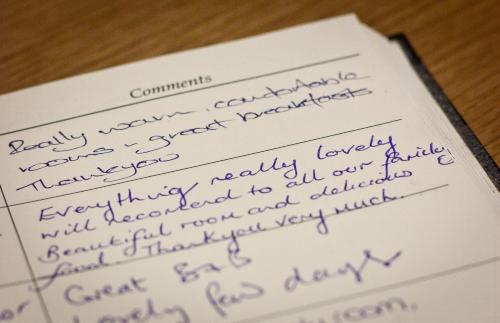 Comments
Really warm, comfortable
rooms - great breakfasts
Thankyou
Everything really lovely
will recomend to all our family &
Beautiful room and delicious
food. Thankyou very much.
Great B&B
Lovely few days
or
room,